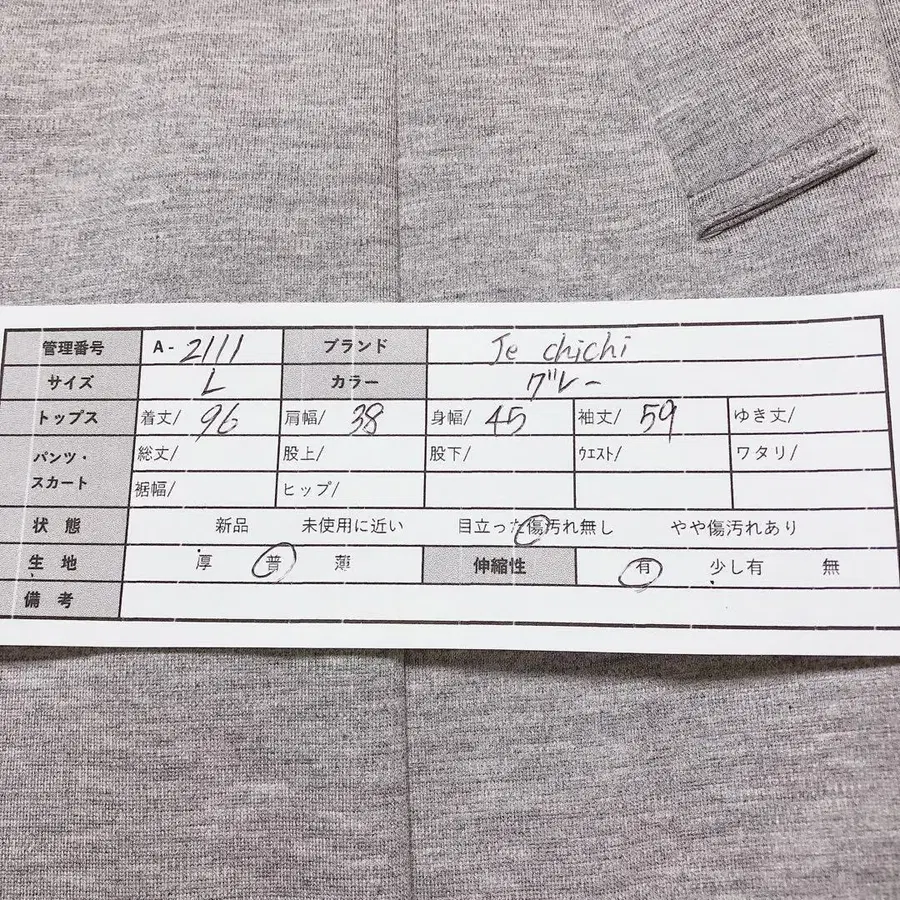 管理番号 A- 2111 ブランド Je chichi
サイズ L カラー グレー
トップス 着丈/ 96 肩幅/ 38 身幅/ 45 袖丈/ 59 ゆき丈/
パンツ・スカート 総丈/ 股上/ 股下/ ウエスト/ ワタリ/
裾幅/ ヒップ/
状態 新品 未使用に近い 目立った傷汚れ無し やや傷汚れあり
生地 厚 普 薄 伸縮性 有 少し有 無
備考